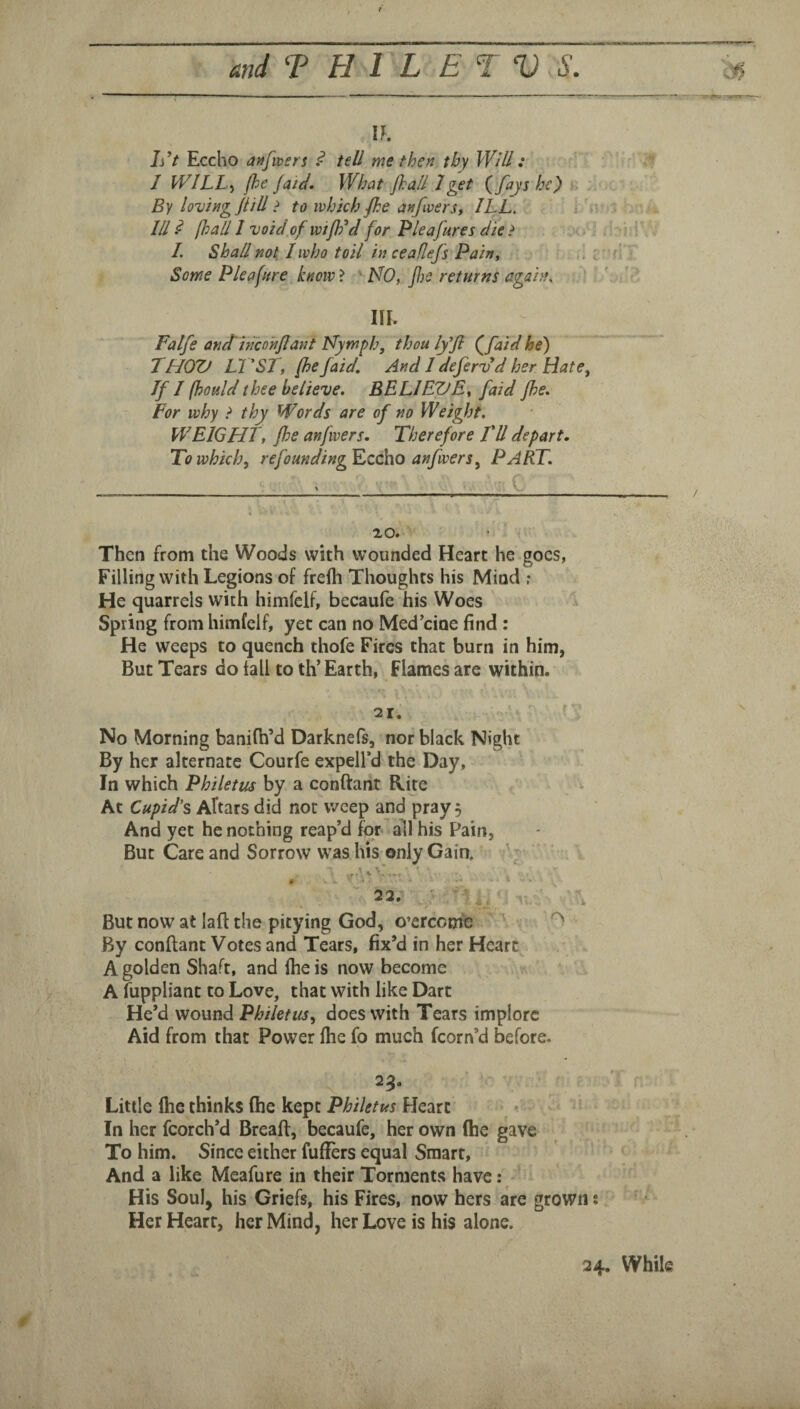 and PHILETVS.
II.
Is't Eccho answers? tell me then thy Will:
I WILL, she said. What shall I get (says he)
By loving still? to which she answers, ILL.
Ill? shall I void of wish'd for Pleasures die?
I. Shall not I who toil in ceasless Pain,
Some Pleasure know? NO, she returns again.
III.
False and inconstant Nymph, thou ly'st (said he)
THOU LY'ST, she said. And I deserv'd her Hate,
If I should thee believe. BELIEVE, said she.
For why? thy Words are of no Weight.
WEIGHT, she answers. Therefore I'll depart.
To which, resounding Eccho answers, PART.
20.
Then from the Woods with wounded Heart he goes,
Filling with Legions of fresh Thoughts his Mind:
He quarrels with himself, because his Woes
Spring from himself, yet can no Med'cine find:
He weeps to quench those Fires that burn in him,
But Tears do fall to th' Earth, Flames are within.
21.
No Morning banish'd Darkness, nor black Night
By her alternate Course expell'd the Day,
In which Philetus by a constant Rite
At Cupid's Altars did not weep and pray;
And yet he nothing reap'd for all his Pain,
But Care and Sorrow was his only Gain.
22.
But now at last the pitying God, o'ercome
By constant Votes and Tears, fix'd in her Heart
A golden Shaft, and she is now become
A suppliant to Love, that with like Dart
He'd wound Philetus, does with Tears implore
Aid from that Power she so much scorn'd before.
23.
Little she thinks she kept Philetus Heart
In her scorch'd Breast, because, her own she gave
To him. Since either suffers equal Smart,
And a like Measure in their Torments have:
His Soul, his Griefs, his Fires, now hers are grown:
Her Heart, her Mind, her Love is his alone.
24. While